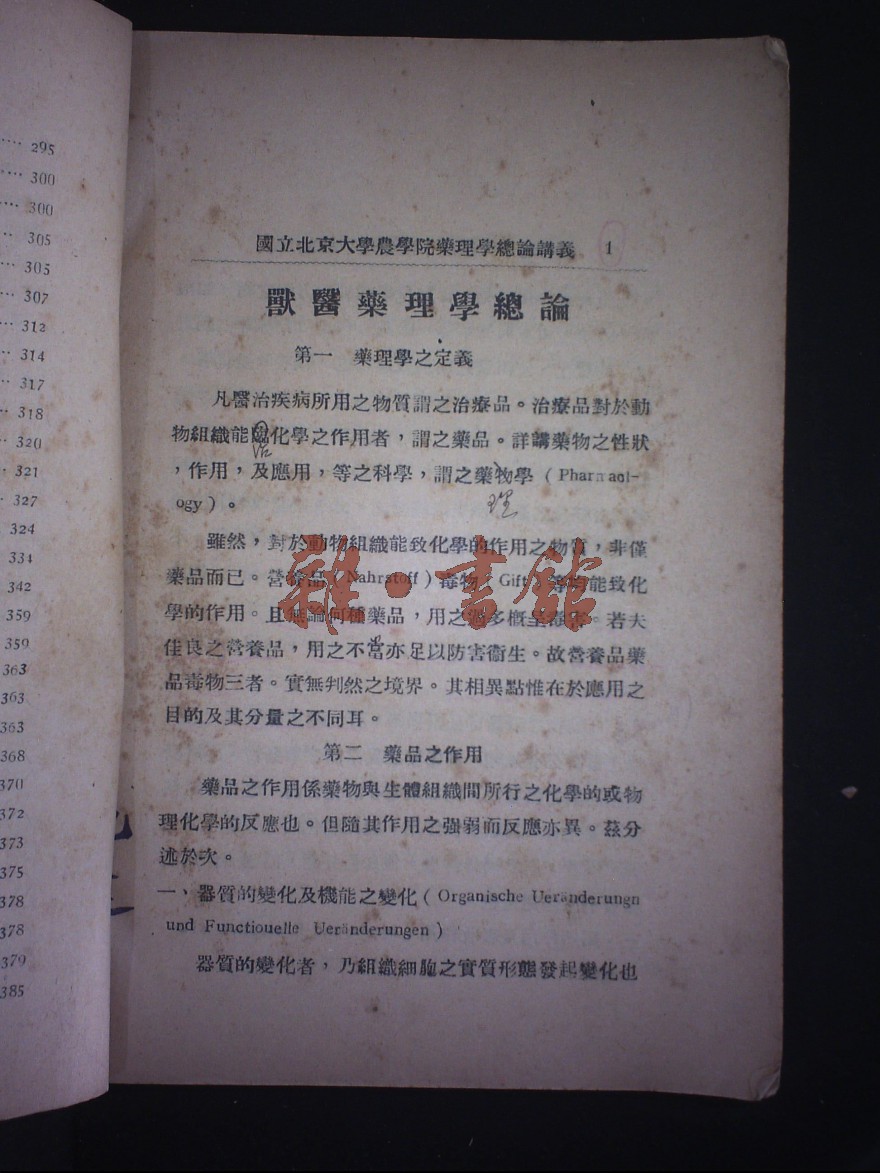 295
300
300
305
305
307
312
314
317
318
320
321
327
324
334
342
359
359
363
363
363
368
370
372
373
375
378
378
379
385
國立北京大學農學院藥理學總論講義 1
獸醫藥理學總論
第一 藥理學之定義
凡醫治疾病所用之物質謂之治療品。治療品對於動
物組織能 化學之作用者,謂之藥品。詳講藥物之性狀
,作用,及應用,等之科學,謂之藥物學(Pharmacol-
理
ogy)。
雖然,對於動物組織能致化學的作用之物質,非僅
藥品而已。營養品(Nahrstoff)毒物(Gift)等均能致化
雜·書館
學的作用。且無論何種藥品,用之過多概呈毒害。若夫
佳良之營養品,用之不當亦足以防害衞生。故營養品藥
品毒物三者。實無判然之境界。其相異點惟在於應用之
目的及其分量之不同耳。
第二 藥品之作用
藥品之作用係藥物與生體組織間所行之化學的或物
理化學的反應也。但隨其作用之強弱而反應亦異。茲分
述於次。
一、器質的變化及機能之變化(Organische Ueränderungn
und Functiouelle Ueränderungen)
器質的變化者,乃組織細胞之實質形態發起變化也